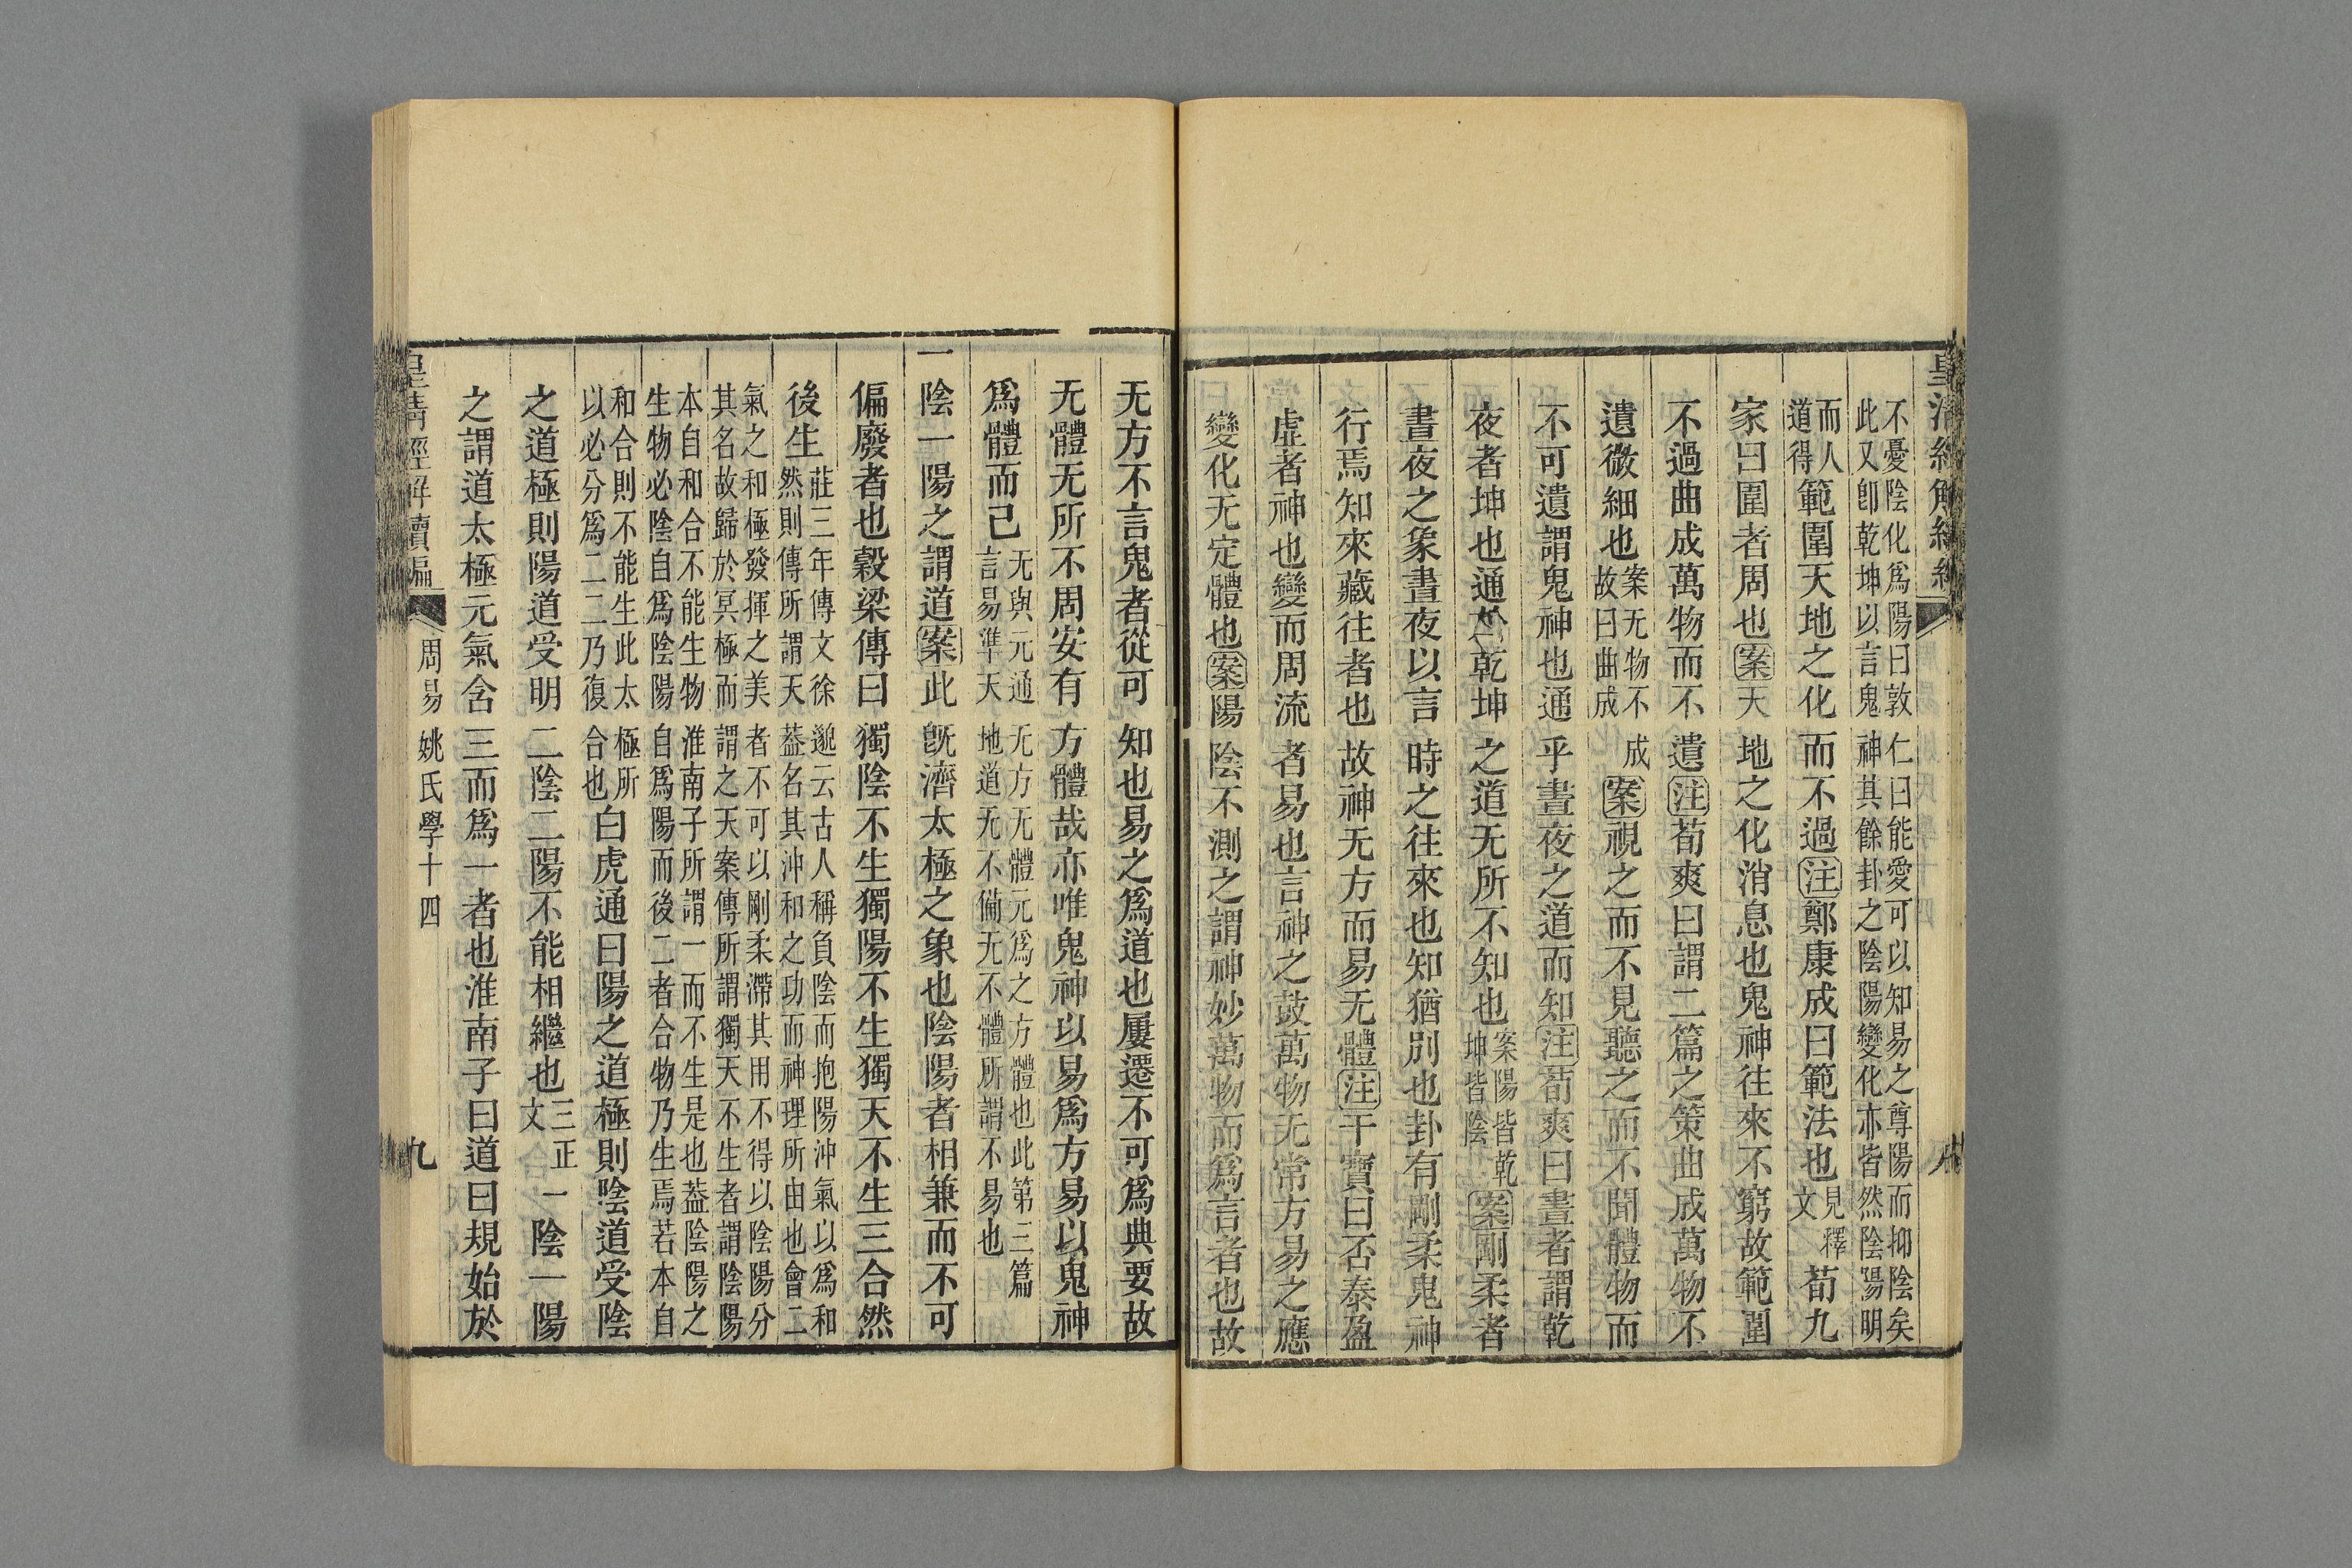 不憂陰化爲陽曰敦仁曰能愛可以知易之尊陽而抑陰矣
此又卽乾坤以言鬼神其餘卦之陰陽變化亦皆然陰陽明
而人
道得
範圍天地之化而不過注鄭康成曰範法也
見釋
文
荀九
家曰圍者周也案天地之化消息也鬼神往來不窮故範圍
不過曲成萬物而不遺注荀爽曰謂二篇之策曲成萬物不
遺微細也
案无物不成
故曰曲成
案視之而不見聽之而不聞體物而
不可遺謂鬼神也通乎晝夜之道而知注荀爽曰晝者謂乾
夜者坤也通於乾坤之道无所不知也
案陽皆乾
坤皆陰
案剛柔者
晝夜之象晝夜以言時之往來也知猶別也卦有剛柔鬼神
行焉知來藏往者也故神无方而易无體注干寶曰否泰盈
虛者神也變而周流者易也言神之鼓萬物无常方易之應
變化无定體也案陽陰不測之謂神妙萬物而爲言者也故
无方不言鬼者從可知也易之爲道也屢遷不可爲典要故
无體无所不周安有方體哉亦唯鬼神以易爲方易以鬼神
爲體而已
无與元通无方无體元爲之方體也此第三篇
言易準天地道无不備无不體所謂不易也
一陰一陽之謂道案此旣濟太極之象也陰陽者相兼而不可
偏廢者也穀梁傳曰獨陰不生獨陽不生獨天不生三合然
後生
莊三年傳文徐邈云古人稱負陰而抱陽沖氣以爲和
然則傳所謂天葢名其沖和之功而神理所由也會二
氣之和極發揮之美者不可以剛柔滯其用不得以陰陽分
其名故歸於冥極而謂之天案傳所謂獨天不生者謂陰陽
本自和合不能生物淮南子所謂一而不生是也葢陰陽之
生物必陰自爲陰陽自爲陽而後二者合物乃生焉若本自
和合則不能生此太極所
以必分爲二二乃復合也
白虎通曰陽之道極則陰道受陰
之道極則陽道受明二陰二陽不能相繼也
三正
文
一陰一陽
之謂道太極元氣含三而爲一者也淮南子曰道曰規始於
周易姚氏學十四
九